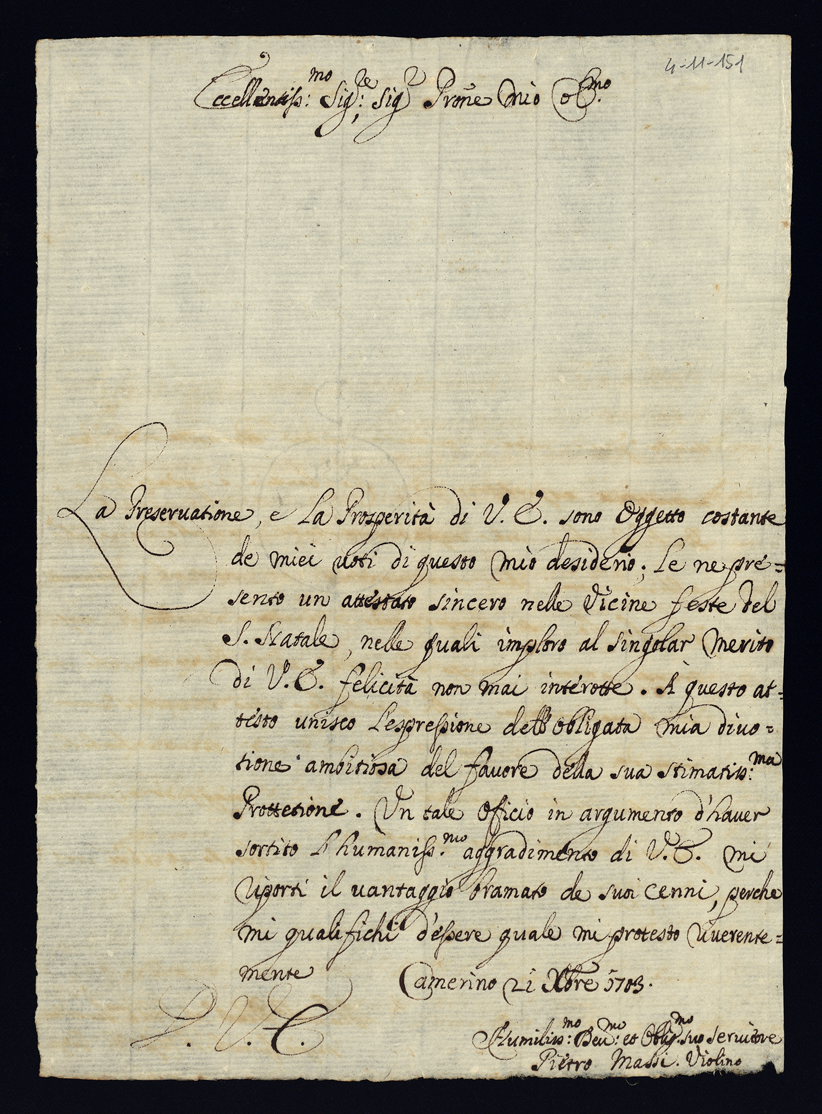 4-11-151
Eccellentiss:mo Sig:re Sigr Prone mio
La Preservatione, e la Prosperità di V. E. sono Oggetto costante
de miei voti di questo mio desiderio; Le ne pre=
sento un attestato sincero nelle Vicine feste del
S. Natale, nelle quali imploro al singolar merito
di V. E. felicità non mai interotte. A questo at=
testo unisco L'espressione dell'obligata mia divo=
tione ambitiosa del favore della sua stimatiss:ma
Prottetione. Un tale Oficio in argumento d'haver
sortito L'humaniss.mo aggradimento di V. E. mi
riporti il vantaggio bramato de suoi cenni, perche
mi qualifichi d'essere quale mi protesto riverente=
mente Camerino 21 Xbre 1703.
D. V. E.
Humiliss:mo Dev:mo et Oblig:mo suo servitore
Pietro Massi Violino